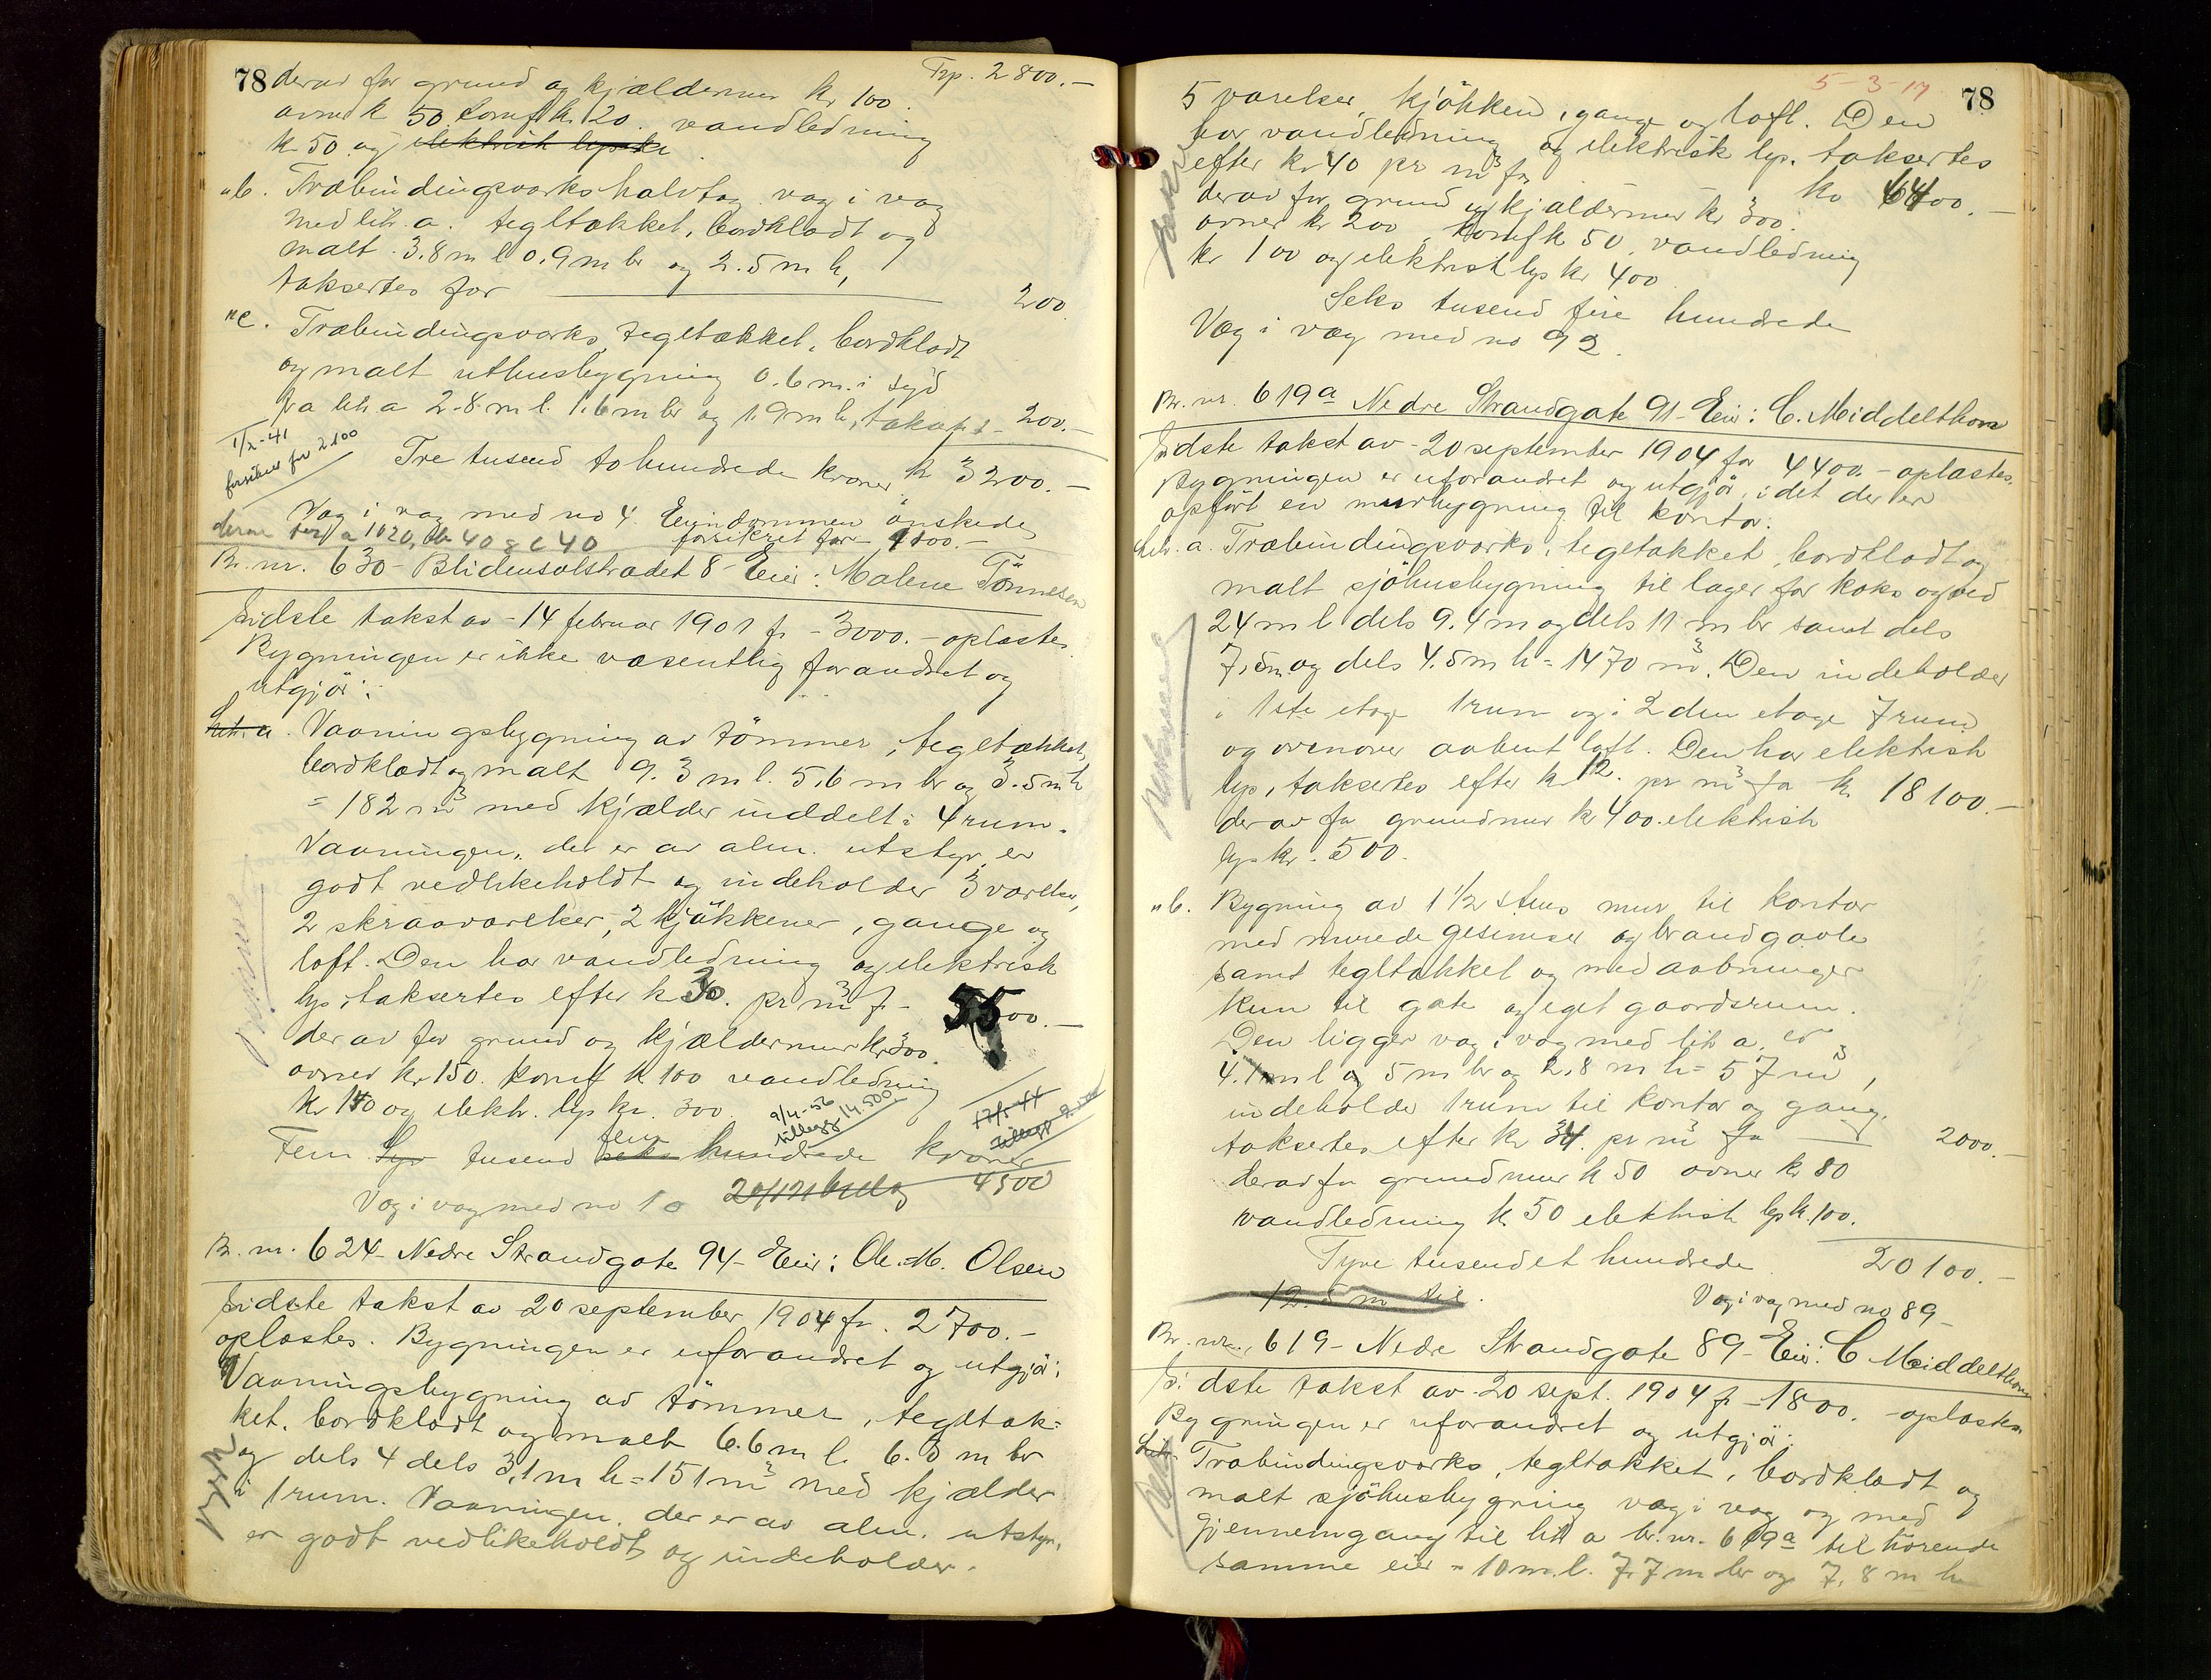 78 derav for grund og kjældermur kr 100. Trp. 2800.—
ovner k 50. komf k. 20. vandledning
kr 50 og elektrisk lys kr
"b. Træbindingsverks halvtag væg i væg
med litr. a. tegltækket, bordklædt og
malt. 3.8 m l 0.9 m br og 2.5 m h,
taksertes for 200.
"c. Træbindingsverks, tegltækket, bordklædt
og malt uthusbygning 0.6 m. i syd
fra litr. a 2.8 m l. 1.6 m br og 1.9 m h, takst 200.—
1/2-41
forsikret for 2100
Tre tusend to hundrede kroner k 3200.—
Væg i væg med no 4. Eiendommen ønskede
forsikret for 1100.—
derav a 1020, b 40 & c 40
Br. nr. 630 - Blidensolstrædet 8 - Eier: Malene Tönnesen
Sidste takst av - 14 februar 1901 fr - 3000. - oplæstes.
Bygningen er ikke væsentlig forandret og
utgjör:
Litr. a. Vaaningsbygning av tömmer, tegltækket,
bordklædt og malt 9.3 m l. 5.6 m br og 3.5 m h
= 182 m³ med kjælder inddelt i 4 rum.
Vaaningen, der er av alm. utstyr, er
godt vedlikeholdt og indeholder 3 værelser,
2 skraaværelser, 2 kjökkener, gange og
loft. Den har vandledning og elektrisk
lys, taksertes efter k 30. pr m³ fr - 5500.—
derav for grund og kjældermur kr 300.
ovner kr. 150. komf k 100 vandledning
kr 150 og elektr. lys kr. 300.
9/4-56
tillegg 14.500
tillegg
Fem Syv tusend fem seks hundrede kroner
Væg i væg med no 10 4500
Br. nr. 624 - Nedre Strandgate 94 - Eier: Ole. M. Olsen
Sidste takst av 20 september 1904 fr. 2700.—
oplæstes. Bygningen er uforandret og utgjör:
Vaaningsbygning av tömmer, tegltæk=
ket. bordklædt og malt 6.6 m l. 6.5 m br
og dels 4 dels 3.1 m h = 151 m³ med kjælder
i 1 rum. Vaaningen, der er av alm. utstyr,
er godt vedlikeholdt og indeholder.
5-3-17
78
5 værelser, kjökken, gange og loft. Den
har vandledning og elektrisk lys. taksertes
efter kr 40 pr m³ fr kr 6400.—
derav for grund og kjældermur kr 300.
ovner kr 200, komf k 50, vandledning
kr 100 og elektrisk lys kr 400
Seks tusend fire hundrede
Væg i væg med no 92.
Br. nr. 619a Nedre Strandgate 91 - Eier: C. Middelthon
Sidste takst av - 20 september 1904 for 4400. - oplæstes.
Bygningen er uforandret og utgjör, idet der er
opfört en murbygning til kontor.
Litr. a. Træbindingsverks, tegltækket, bordklædt og
malt sjöhusbygning til lager for koks og ved
24 m l dels 9.4 m og dels 11 m br samt dels
7.5 m og dels 4.5 m h = 1470 m³. Den indeholder
i 1ste etage 1 rum og i 2den etage 7 rum
og ovenover aabent loft. Den har elektrisk
lys, taksertes efter kr 12. pr m³ fr k 18100.—
derav fr grundmur kr 400. elektrisk
lys kr. 500.
"b. Bygning av 1 1/2 stens mur til kontor
med murede gesimser og brandgavle
samt tegltækket og med aabninger
kun til gate og eget gaardsrum.
Den ligger væg i væg med litr. a. er
4.1 m l og 5 m br og 2.8 m h = 57 m³,
indeholder 1 rum til kontor og gang.
taksertes efter kr 34. pr m³ fr 2000.—
derav fr grundmur k 50 ovner kr 80
vandledning k. 50 elektrisk lys k. 100.
Tyve tusend et hundrede 20100.—
12.5 m
Væg i væg med no 89 -
Br. nr. 619 - Nedre Strandgate 89 - Eier: C Middelthon
Sidste takst av - 20 sept. 1904 fr - 1800. - oplæstes.
Bygningen er uforandret og utgjör:
Litr. Træbindingsverks, tegltækket, bordklædt og
malt sjöhusbygning væg i væg og med
gjennemgang til litr a br. nr. 619a tilhörende
samme eier = 10 m. l. 7.7 m br og 7.8 m h